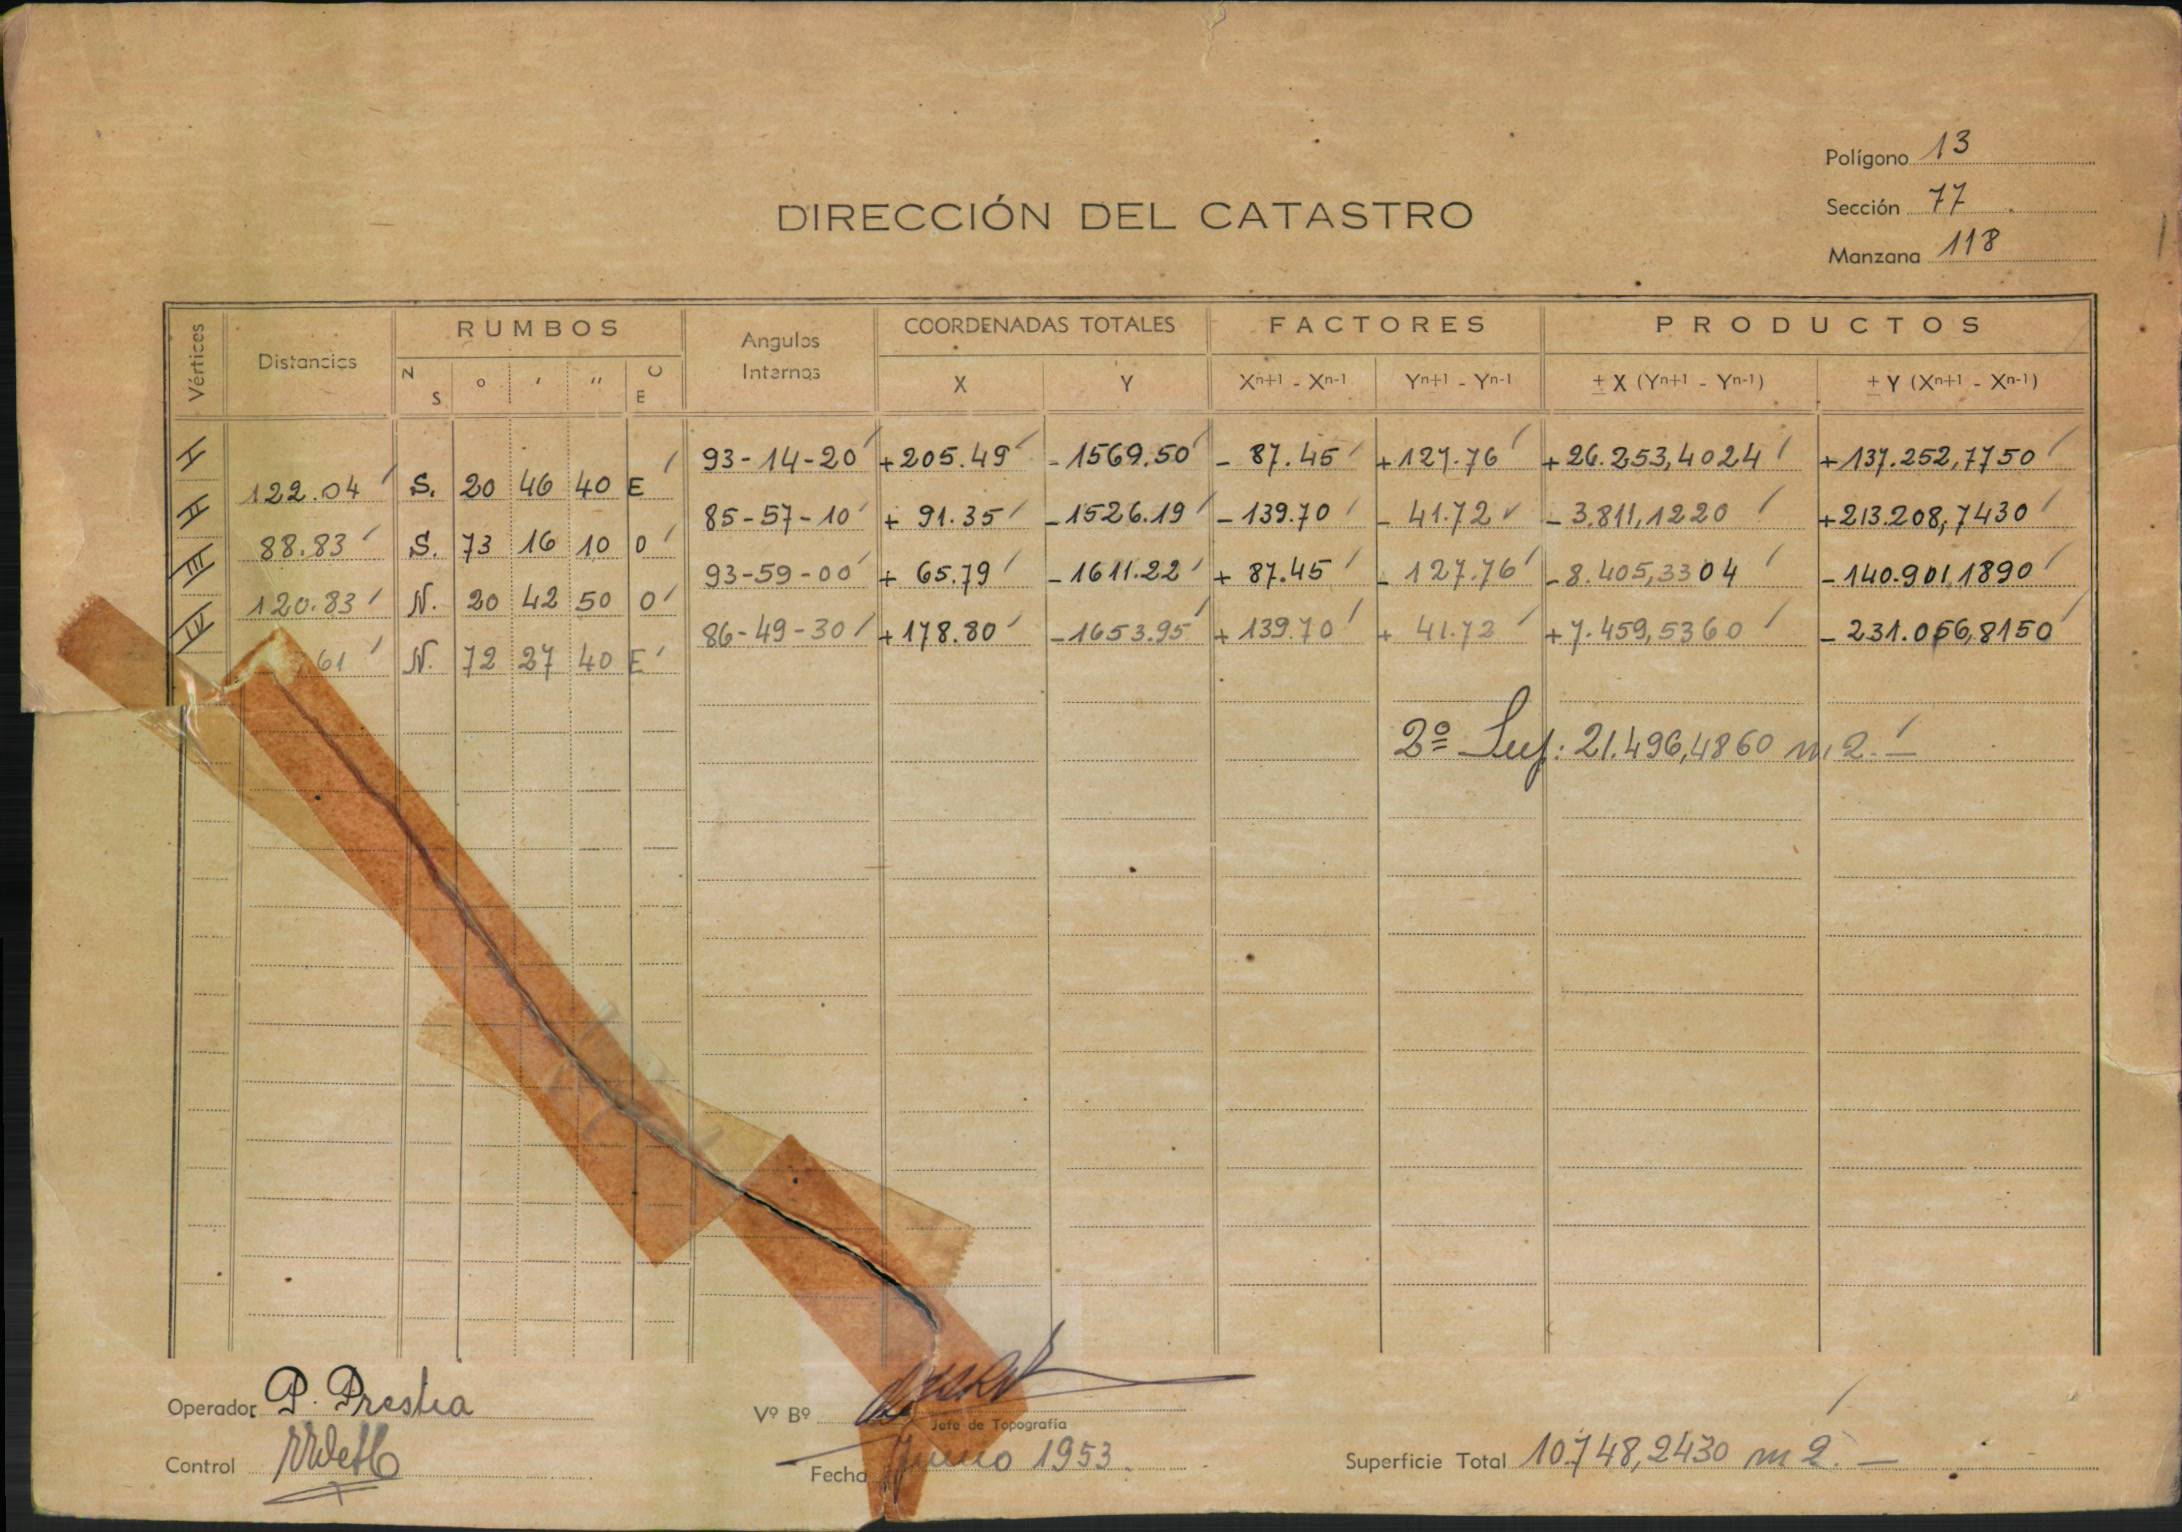 Polígono 13
Sección 77
Manzana 118
DIRECCIÓN DEL CATASTRO
Vértices Distancias RUMBOS Angulos Internos COORDENADAS TOTALES FACTORES PRODUCTOS
N S ° ' '' O E X Y Xn+1 - Xn-1 Yn+1 - Yn-1 ± X (Yn+1 - Yn-1) ± Y (Xn+1 - Xn-1)
I 93-14-20 +205.49 -1569.50 - 87.45 +127.76 +26.253,4024 +137.252,7750
122.04 S. 20 46 40 E
II 85-57-10 + 91.35 -1526.19 -139.70 - 41.72 -3.811,1220 +213.208,7430
88.83 S. 73 16 10 O
III 93-59-00 + 65.79 -1611.22 + 87.45 - 127.76 -8.405,3304 -140.901,1890
120.83 N. 20 42 50 O
IV 86-49-30 +178.80 -1653.95 +139.70 + 41.72 +7.459,5360 -231.056,8150
.61 N. 72 27 40 E
2º Sup: 21.496,4860 m2.-
Operador P. Prestia
Vº Bº
Jefe de Topografía
Control
Fecha Junio 1953.
Superficie Total 10.748,2430 m2.-